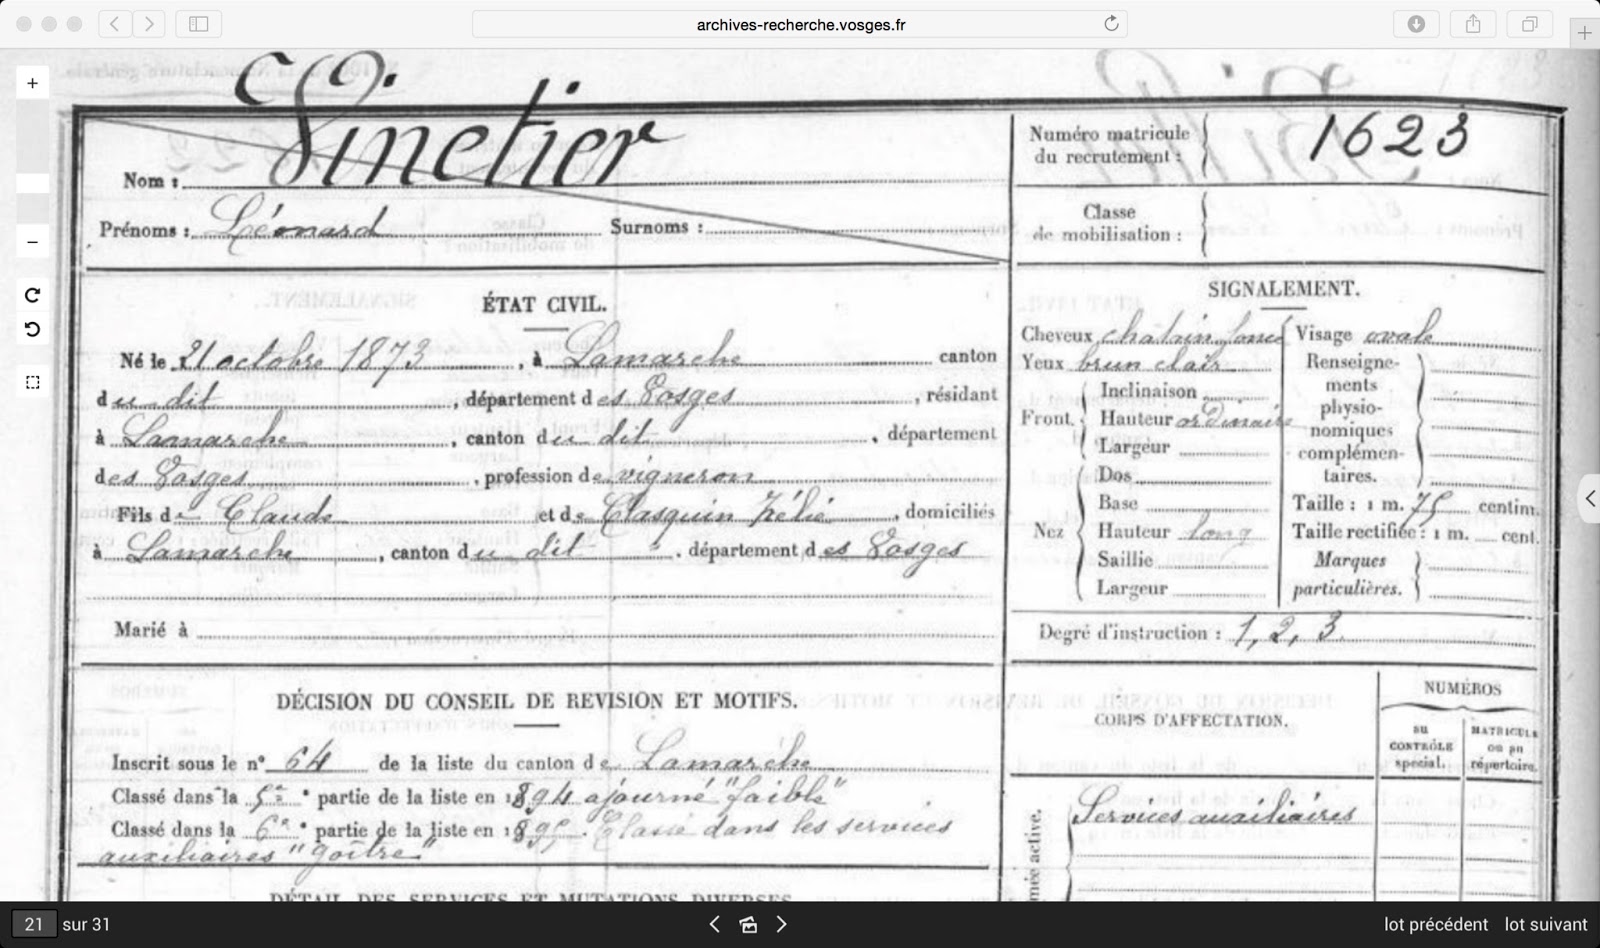 archives-recherche.vosges.fr
Nom : Sinetier
Numéro matricule du recrutement : 1623
Prénoms : Léonard Surnoms :
Classe de mobilisation :
ÉTAT CIVIL.
Né le 21 octobre 1873, à Lamarche canton
du dit, département des Vosges, résidant
à Lamarche, canton du dit, département
des Vosges, profession de vigneron
Fils de Claude et de Clasquin Zélie, domiciliés
à Lamarche, canton du dit, département des Vosges
Marié à
SIGNALEMENT.
Cheveux chatain foncé Visage ovale
Yeux brun clair Renseigne-
Inclinaison ments
Front. Hauteur ordinaire physio-
Largeur nomiques
Dos complémen-
Base taires.
Taille : 1 m. 75 centim.
Nez Hauteur long Taille rectifiée : 1 m. cent.
Saillie Marques
Largeur particulières.
Degré d'instruction : 1, 2, 3.
DÉCISION DU CONSEIL DE REVISION ET MOTIFS.
Inscrit sous le nº 64 de la liste du canton de Lamarche
Classé dans la 5e partie de la liste en 1894 ajourné "faible"
Classé dans la 6e partie de la liste en 1895. Classé dans les services
auxiliaires "goître"
CORPS D'AFFECTATION.
NUMÉROS
au CONTRÔLE spécial.
MATRICULE ou au répertoire.
Services auxiliaires
mée active.
DÉTAIL DES SERVICES ET MUTATIONS DIVERSES
21 sur 31
lot précédent lot suivant